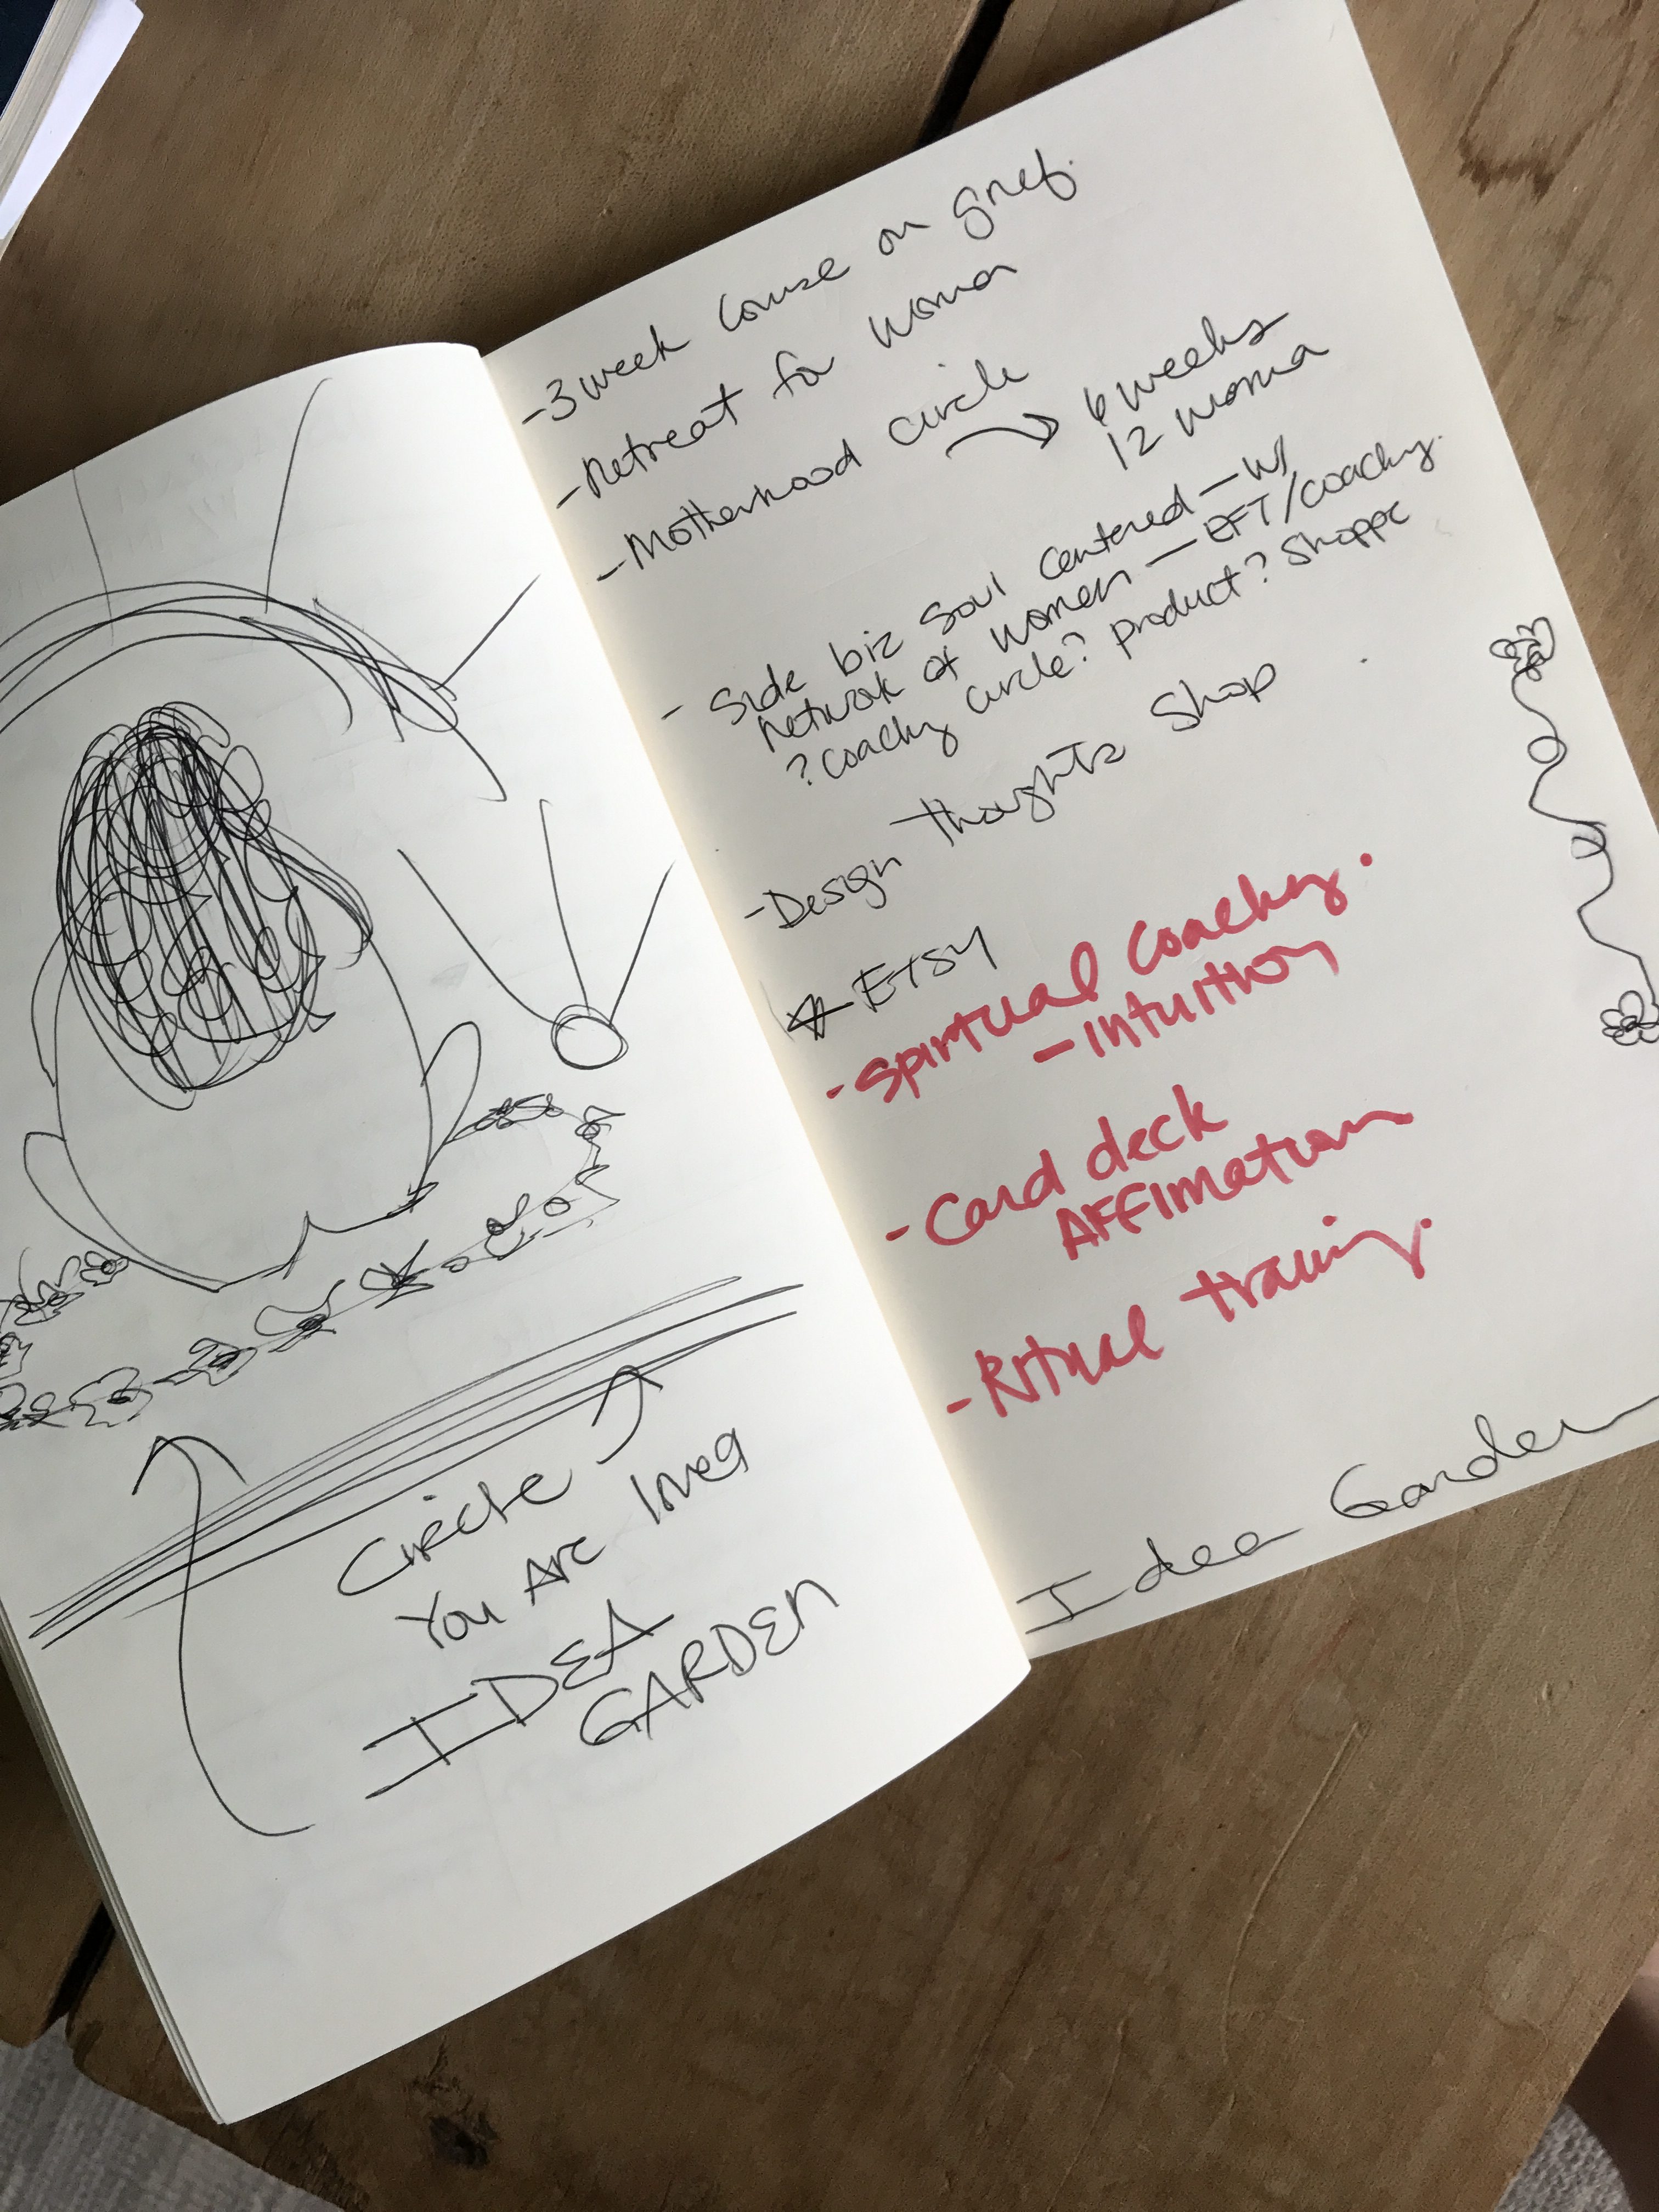 CIRCLE
You Are loved
IDEA
GARDEN
-3 week course on grief.
-Retreat for woman
-Motherhood circle
6 weeks
12 woman
- Side biz soul centered - w/
network of women - EFT/coachg.
?coachg circle? product? Shoppe
-Design thoughts shop
ETSY
- spirtual coachg.
- intuition
- Card deck
AFFIMATION
- Ritual training.
Idea Garden